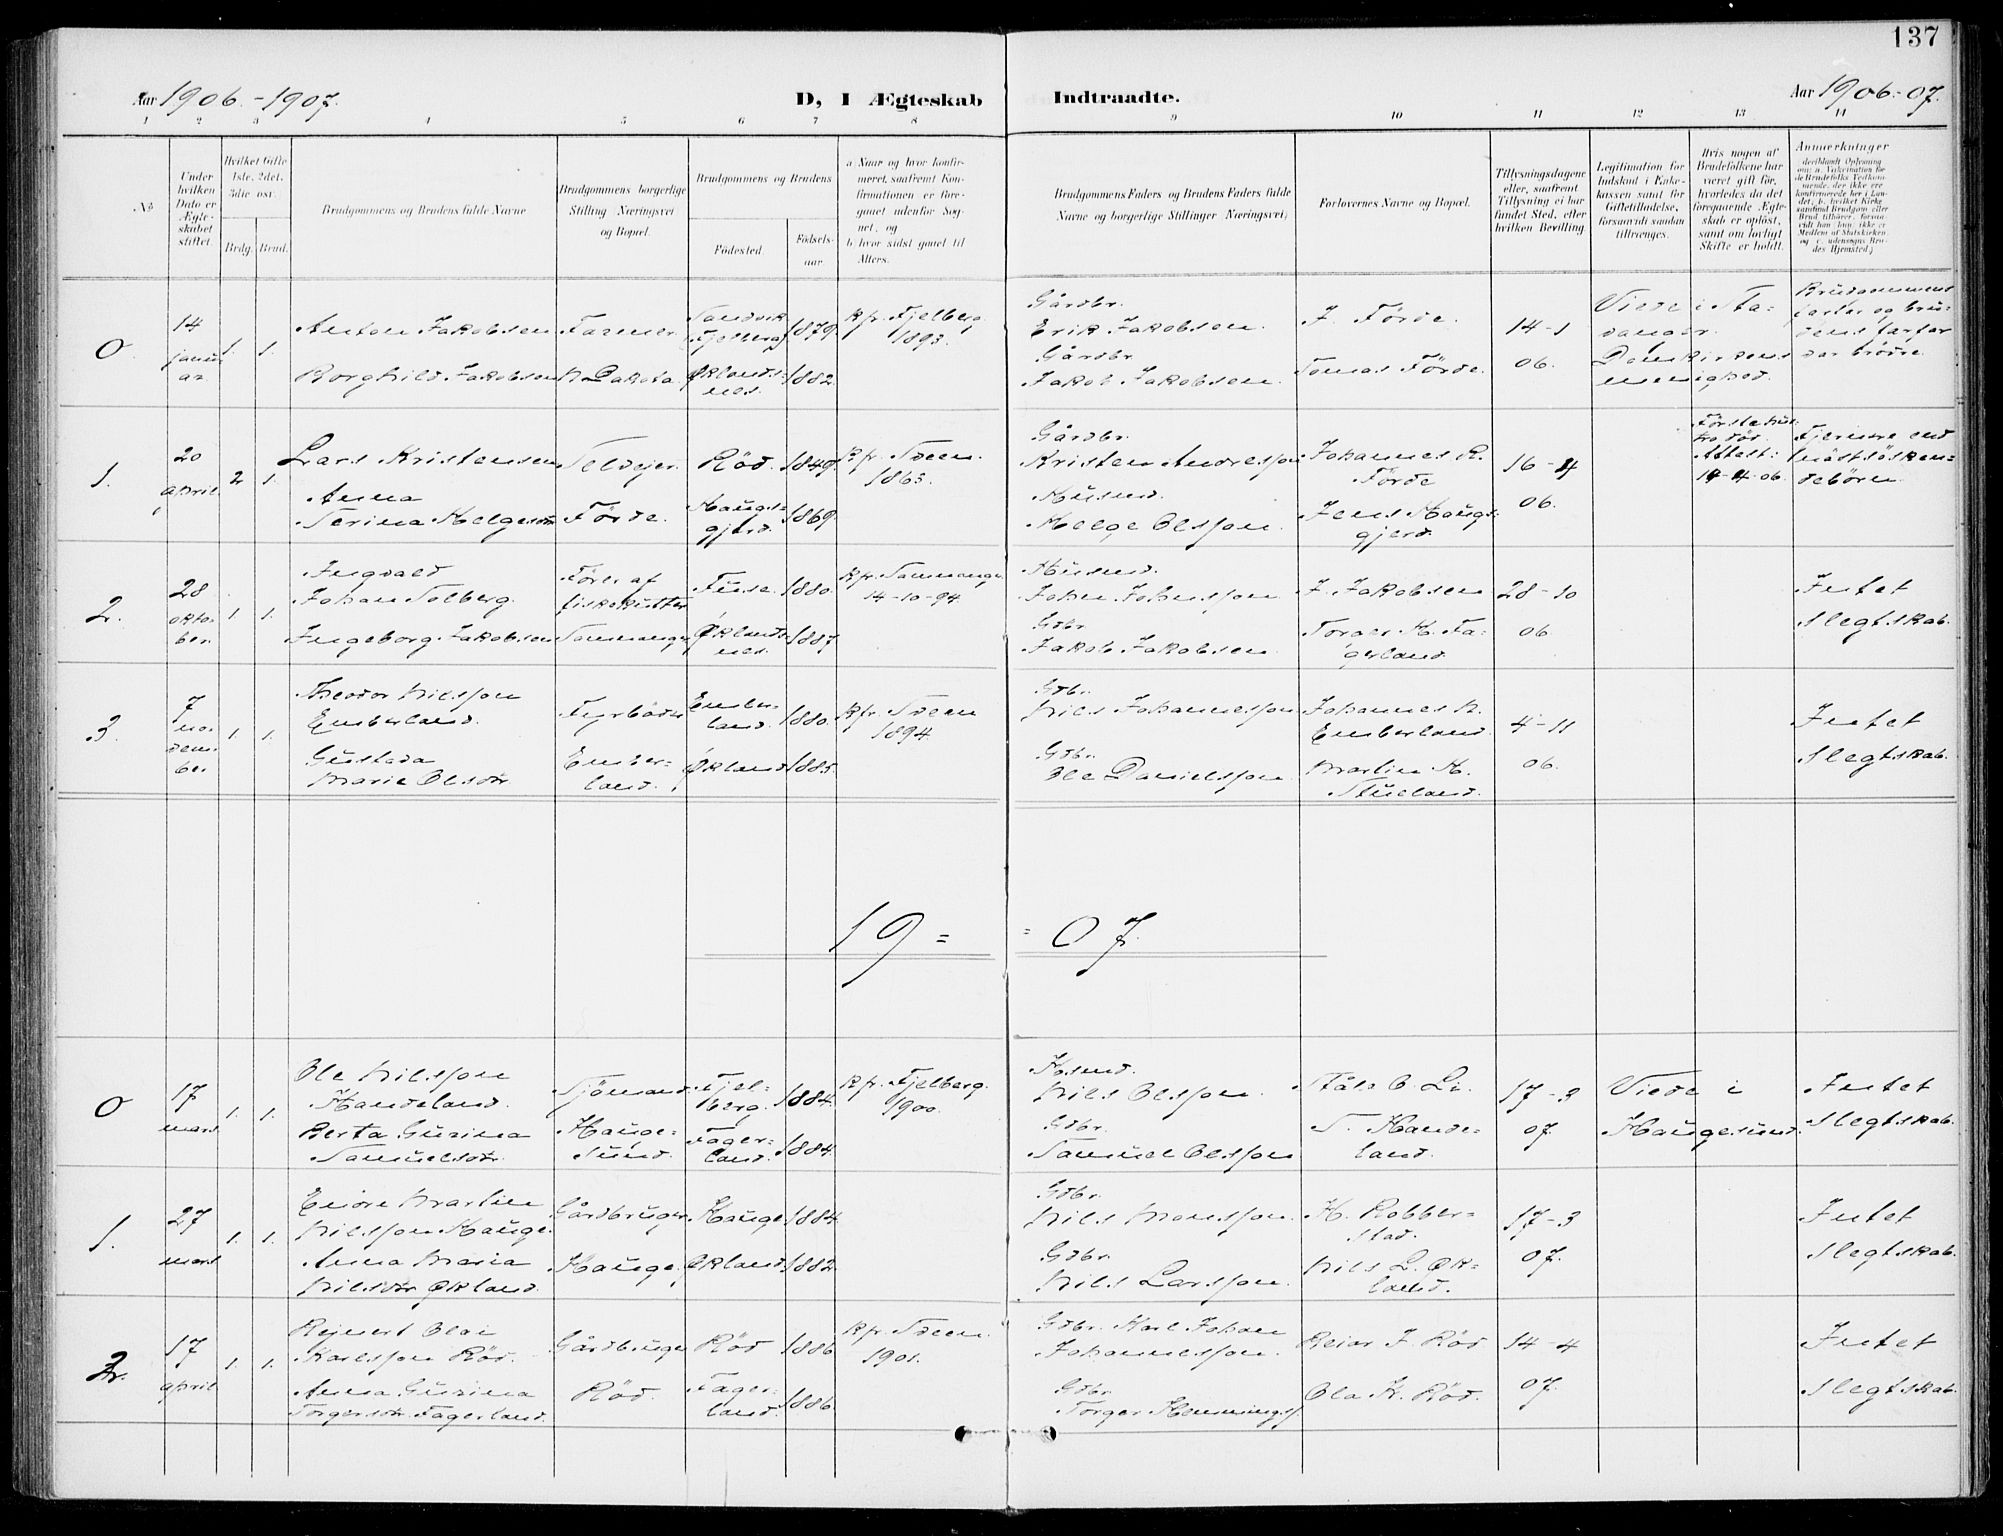 137
Aar 1906.-1907.
D, I Ægteskab Indtraadte.
Aar 1906.-07.
1 2 3 4 5 6 7 8 9 10 11 12 13 14
No
Under hvilken Dato er Ægteskabet stiftet.
Hvilket Gifte 1ste, 2det, 3die osv.
Brdg. Brud.
Brudgommens og Brudens fulde Navne
Brudgommens borgerlige Stilling Næringsvei og Bopæl.
Brudgommens og Brudens
Fødested. Fødselsaar.
a. Naar og hvor konfirmeret, saafremt Konfirmationen er foregaaet udenfor Sognet, og
b. hvor sidst gaaet til Alters.
Brudgommens Faders og Brudens Faders fulde Navne og borgerlige Stillinger Næringsvei;
Forlovernes Navne og Bopæl.
Tillysningsdagene eller, saafremt Tillysning ei har fundet Sted, efter hvilken Bevilling.
Legitimation for Indskud i Enkekassen samt for Giftetilladelse, forsaavidt saadan tiltrænges.
Hvis nogen af Brudefolkene har været gift før, hvorledes da det foregaaende Ægteskab er opløst, samt om lovligt Skifte er holdt.
Anmerkninger
0. 14 januar 1. 1.
Anton Jakobsen
Farmer
Sandvik Fjelberg
1879.
Kfr. Fjelberg 1893.
Gårdbr. Erik Jakobsen.
J. Förde.
14-1 06.
Viede i Stavanger.
Brudgommens farfar og brudens farfar var brödre.
Borghild Jakobsen
N Dakota.
Øklandsnes.
1882.
Gårdbr. Jakob Jakobsen.
Tomas Förde.
menighed.
1. 20 april. 2. 1.
Lars Kristensen
Selvejer.
Röd.
1849.
Kfr. Sveen. 1865.
Gårdbr. Kristen Andresson
Johannes R. Förde
16-4 06.
Förste hustro död. Attest: 14-4-06.
Anna Serina Helgesdtr
Förde.
Haugsgjerd.
1869.
Husmd. Helge Olsson.
Jens Haugsgjerd.
2. 28 oktober. 1. 1.
Ingvald Johan Solberg.
Förer af fiskekutter
Fuse.
1880.
14-10-94.
Husmd. John Johnsson
J. Jakobsen
28-10 06
Intet Slegtskab.
Ingeborg Jakobsen
Øklandsnes.
1887.
Gdbr. Jakob Jakobsen.
Torger H. Fagerland.
3. 7 november 1. 1.
Theodor Nilsson Emberland.
Fyrböder
Emberland.
1880.
Kfr. Sveen 1894.
Gdbr. Nils Johannesson
Johannes N. Emberland.
4-11 06.
Intet Slegtskab.
Gustava Marie Olsdtr
Emberland.
Økland
1885.
Gdbr. Ole Danielsson.
Martin H. Stueland.
19= =07.
0 17 mars 1. 1.
Ole Nilsson Handeland.
Sjömand.
Fjelberg.
1884.
Kfr. Fjelberg. 1900.
Husmd. Nils Olsson.
Ståle O. Li.
17-3 07.
Viede i Haugesund.
Intet Slegtskab.
Berta Gurina Samuelsdtr.
Haugesund.
Fagerland.
1884.
Gdbr. Samuel Olsson
T. Handeland.
1. 27 mars 1. 1.
Enöre Martin Nilsson Hauge.
Gårdbruger
Hauge
1884.
Gdbr. Nils Monsson.
H. Robberstad.
17-3 07.
Intet Slegtskab.
Anna Maria Nilsdtr Økland.
Hauge.
Økland
1882.
Gdbr. Nils Larsson.
Nils L. Økland.
2. 17 april 1. 1.
Rejnert Olai Karlsson Röd.
Gårdbruger
Röd
1886
Kfr. Sveen. 1901.
Gdbr. Karl Johan Johannesson.
Reiar J. Röd
14-4 07.
Intet Slegtskab.
Anna Gurina Torgersdtr. Fagerland.
Röd.
Fagerland.
1886.
Gdbr. Torger Hennings.
Ola K. Röd.